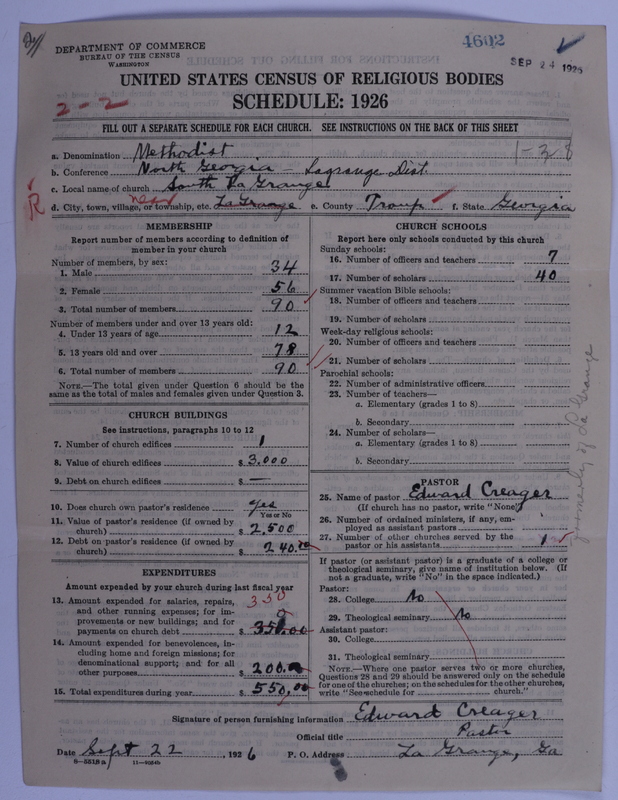 DEPARTMENT OF COMMERCE
BUREAU OF THE CENSUS
WASHINGTON
4602
SEP 24 1926
UNITED STATES CENSUS OF RELIGIOUS BODIES
2-2
SCHEDULE: 1926
FILL OUT A SEPARATE SCHEDULE FOR EACH CHURCH. SEE INSTRUCTIONS ON THE BACK OF THIS SHEET
1-328
a. Denomination Methodist
b. Conference North Georgia - Lagrange Dist.
c. Local name of church South La Grange
R
d. City, town, village, or township, etc. near La Grange e. County Troup f. State Georgia
MEMBERSHIP
Report number of members according to definition of
member in your church
Number of members, by sex:
1. Male 34
2. Female 56
3. Total number of members 90
Number of members under and over 13 years old:
4. Under 13 years of age 12
5. 13 years old and over 78
6. Total number of members 90
NOTE.—The total given under Question 6 should be
same as the total of males and females given under Question 3.
CHURCH BUILDINGS
See instructions, paragraphs 10 to 12
7. Number of church edifices 1
8. Value of church edifices $ 3,000
9. Debt on church edifices $ —
10. Does church own pastor's residence yes
Yes or No
11. Value of pastor's residence (if owned by
church) $ 2,500
12. Debt on pastor's residence (if owned by
church) $ 240.00
EXPENDITURES
Amount expended by your church during last fiscal year
13. Amount expended for salaries, repairs, 350
and other running expenses; for im-
provements or new buildings; and for
payments on church debt $ 350.00
14. Amount expended for benevolences, in-
cluding home and foreign missions; for
denominational support; and for all
other purposes $ 200.00
15. Total expenditures during year $ 550.00
CHURCH SCHOOLS
Report here only schools conducted by this church
Sunday schools:
16. Number of officers and teachers 7
17. Number of scholars 40
Summer vacation Bible schools:
18. Number of officers and teachers
19. Number of scholars
Week-day religious schools:
20. Number of officers and teachers
21. Number of scholars
Parochial schools:
22. Number of administrative officers
23. Number of teachers—
a. Elementary (grades 1 to 8)
b. Secondary
24. Number of scholars—
a. Elementary (grades 1 to 8)
b. Secondary
PASTOR
25. Name of pastor Edward Creager
(If church has no pastor, write "None")
26. Number of ordained ministers, if any, em-
ployed as assistant pastors
27. Number of other churches served by the
pastor or his assistants 1
If pastor (or assistant pastor) is a graduate of a college or
theological seminary, give name of institution below. (If
not a graduate, write "No" in the space indicated.)
Pastor:
28. College No
29. Theological seminary No
Assistant pastor:
30. College
31. Theological seminary
NOTE.—Where one pastor serves two or more churches,
Questions 28 and 29 should be answered only on the schedule
for one of the churches; on the schedules for the other churches,
write "See schedule for church."
formerly of La Grange
Signature of person furnishing information Edward Creager
Official title Pastor
Date Sept 22, 1926 P. O. Address La Grange, Ga
8-5518a 11-9024b